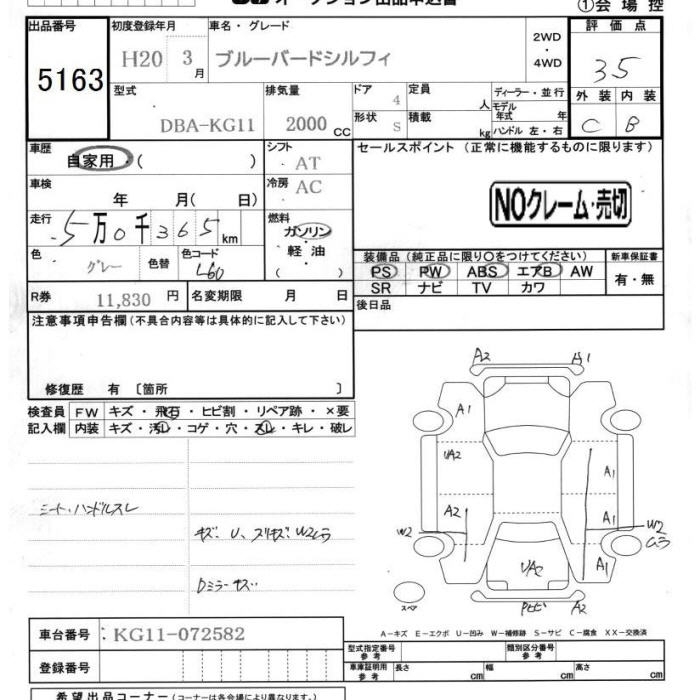 オークション出品申込書 ①会場控
出品番号 初度登録年月 車名・グレード 2WD ・ 4WD 評価点
5163 H20 3月 ブルーバードシルフィ 35
型式 排気量 ドア 4 定員 人 ディーラー・並行 外装 内装
DBA-KG11 2000 CC 形状 S 積載 kg モデル年式 年 ハンドル 左・右 C B
車歴 自家用 ( ) シフト AT セールスポイント (正常に機能するものに限ります)
車検 年 月( 日) 冷房 AC NOクレーム・売切
走行 5万0千365km 燃料 ガソリン・軽油 ( )
色 グレー 色替 色コード L60
装備品 (純正品に限り○をつけてください) 新車保証書
PS PW ABS エアB AW 有・無
SR ナビ TV カワ
R券 11,830円 名変期限 月 日 後日品
注意事項申告欄 (不具合内容等は具体的に記入して下さい)
修復歴 有 〔箇所 〕
検査員 FW キズ・飛石・ヒビ割・リペア跡・×要
記入欄 内装 キズ・汚レ・コゲ・穴・スレ・キレ・破レ
A2 A1
A1
UA2 A1
A2 A1
W2 W2
ムラ
UA2 A1
A2
シート・ハンドルスレ
キズ、U、スリキズ、W2ムラ
Dミラーキズ
スペア
A-キズ E-エクボ U-凹み W-補修跡 S-サビ C-腐食 XX-交換済
車台番号 : KG11-072582
型式指定番号 参考 類別区分番号 参考
登録番号
車庫証明用 参考 長さ cm 幅 cm 高さ cm
希望出品コーナー (コーナーは各会場により異なります。)